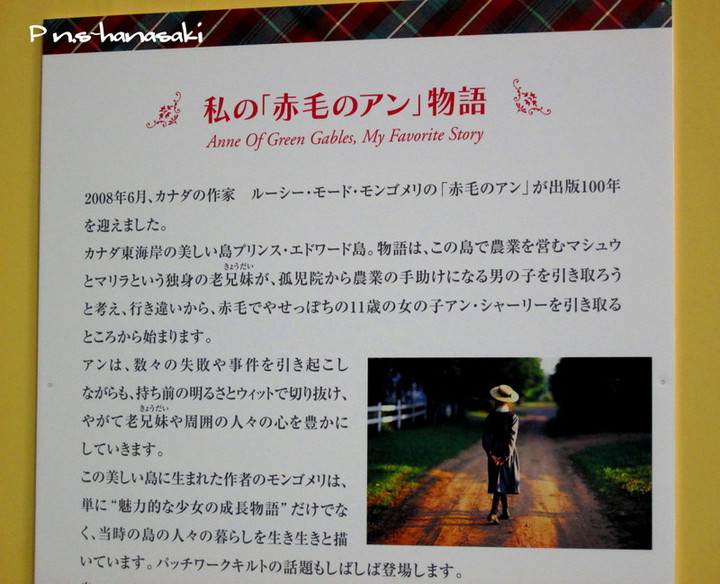 P n.s-hanasaki
私の「赤毛のアン」物語
Anne Of Green Gables, My Favorite Story
2008年6月、カナダの作家　ルーシー・モード・モンゴメリの「赤毛のアン」が出版100年
を迎えました。
カナダ東海岸の美しい島プリンス・エドワード島。物語は、この島で農業を営むマシュウ
きょうだい
とマリラという独身の老兄妹が、孤児院から農業の手助けになる男の子を引き取ろう
と考え、行き違いから、赤毛でやせっぽちの11歳の女の子アン・シャーリーを引き取る
ところから始まります。
アンは、数々の失敗や事件を引き起こし
ながらも、持ち前の明るさとウィットで切り抜け、
きょうだい
やがて老兄妹や周囲の人々の心を豊かに
していきます。
この美しい島に生まれた作者のモンゴメリは、
単に“魅力的な少女の成長物語”だけでな
く、当時の島の人々の暮らしを生き生きと描
いています。パッチワークキルトの話題もしばしば登場します。